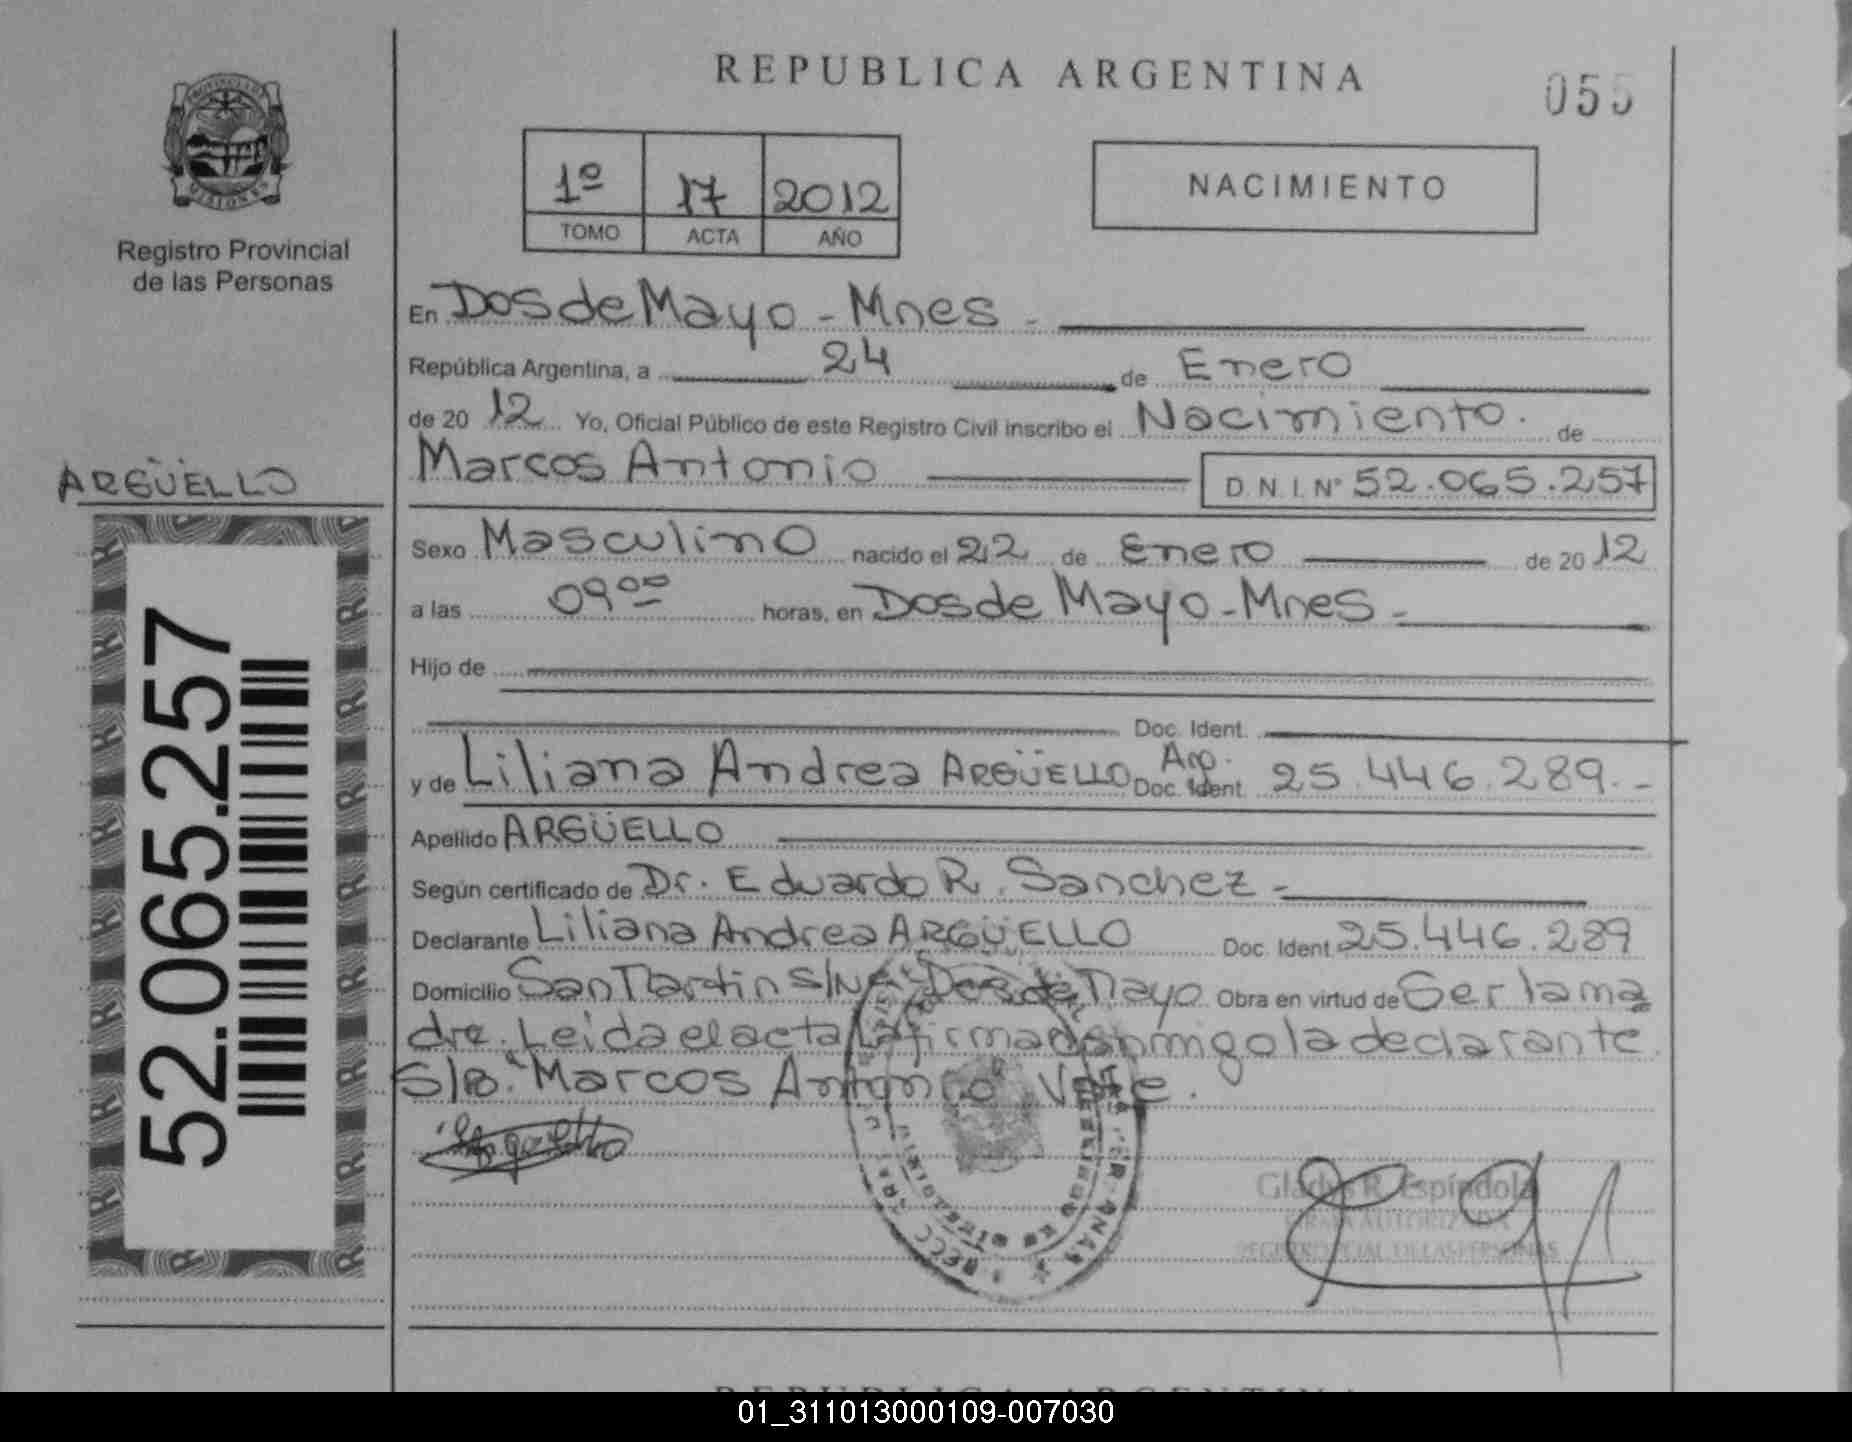 REPUBLICA ARGENTINA
055
PROVINCIA DE
MISIONES
Registro Provincial
de las Personas
1º 17 2012
TOMO ACTA AÑO
NACIMIENTO
En Dos de Mayo - Mnes -
República Argentina, a 24 de Enero
de 20 12 Yo, Oficial Público de este Registro Civil inscribo el Nacimiento. de
Marcos Antonio D.N.I. Nº 52.065.257
ARGÜELLO
Sexo Masculino nacido el 22 de Enero de 20 12
a las 09 00 horas, en Dos de Mayo - Mnes -
Hijo de
Doc. Ident.
y de Liliana Andrea ARGÜELLO Arg. Doc. Ident. 25.446.289.-
Apellido ARGÜELLO
Según certificado de Dr. Eduardo R. Sanchez -
Declarante Liliana Andrea ARGÜELLO Doc. Ident 25.446.289
Domicilio San Martin s/Nº Dos de Mayo Obra en virtud de Ser la ma
dre. Leida el acta la firma conmigo la declarante.
S/B. "Marcos Antonio" Vale.
52.065.257
Gladys R. Espíndola
FIRMA AUTORIZADA
REGISTRO PCIAL. DE LAS PERSONAS
REPUBLICA ARGENTINA
01_311013000109-007030